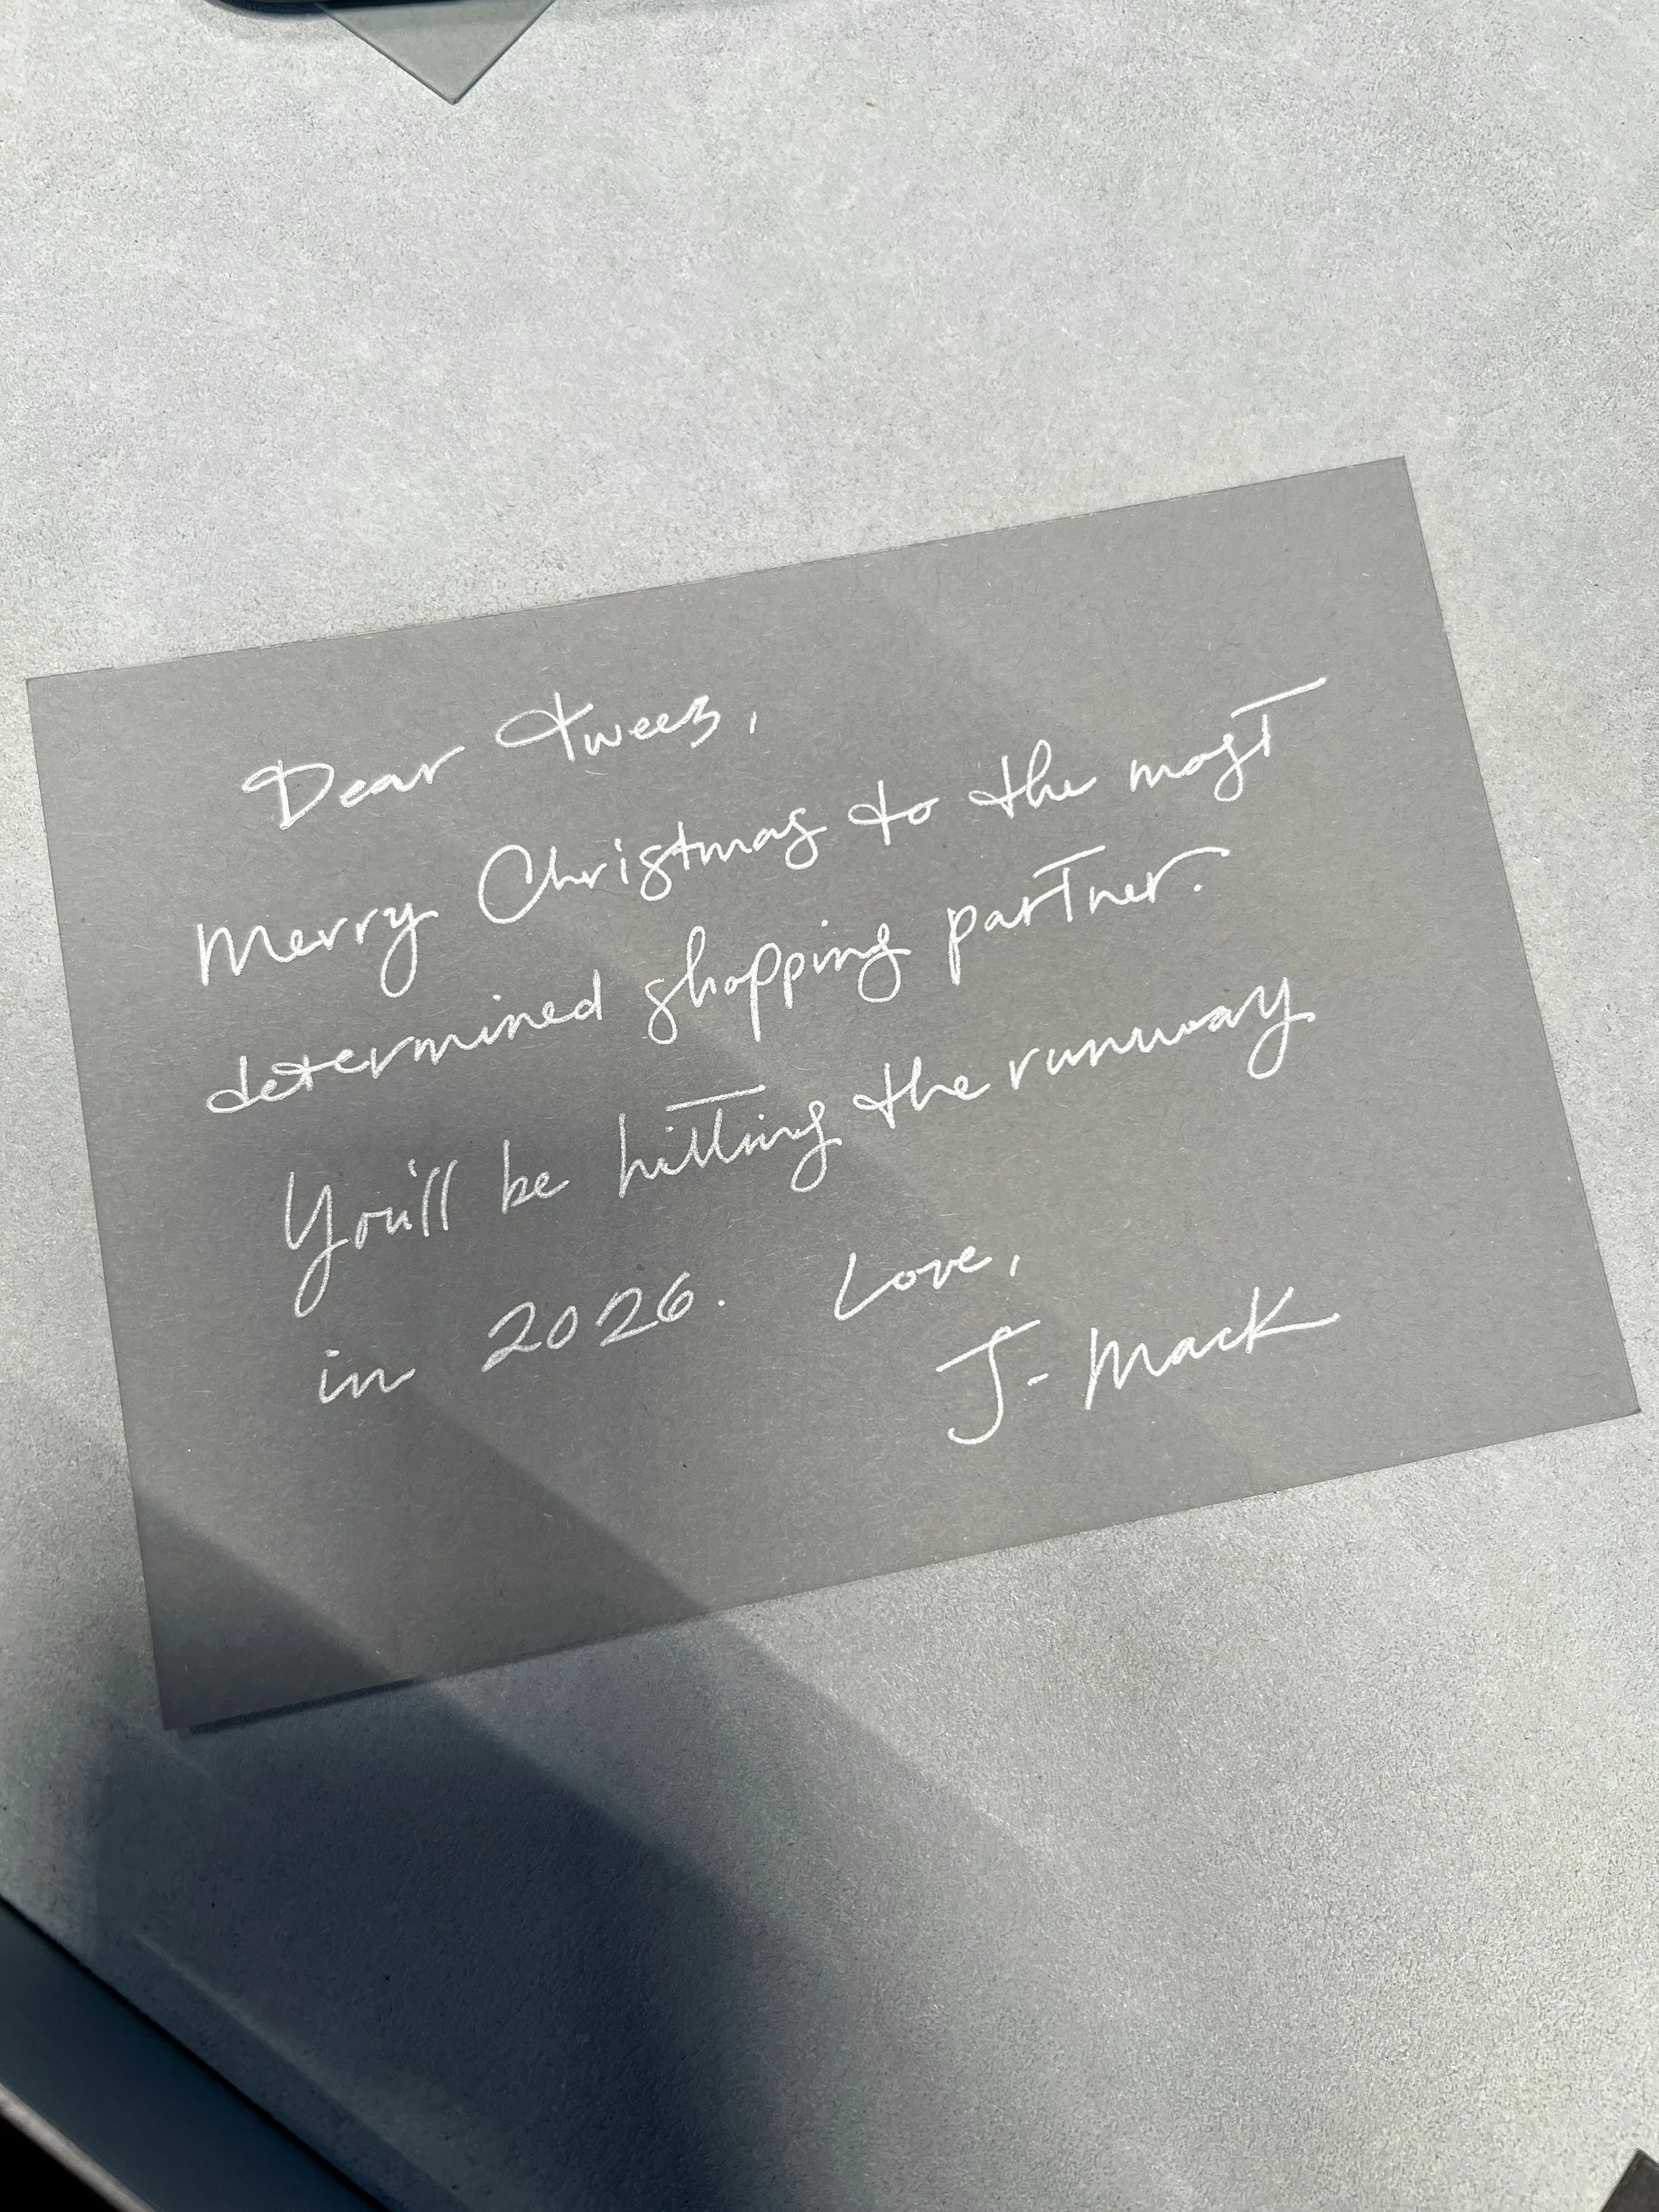 Dear Tweez,
Merry Christmas to the most
determined shopping partner.
You'll be hitting the runway
in 2026. Love,
J-Mack